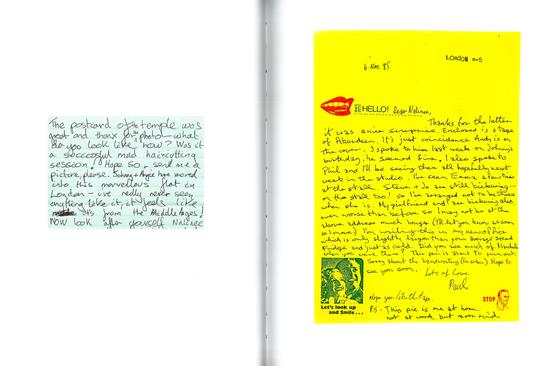 The postcard of the temple was
great and thanx for the photo - what
do you look like now? Was it
a successful mad haircutting
session? Hope so, send me a
picture, please. Johnny & Angie have moved
into this marvellous flat in
London - ive really never seen
anything like it, it feels like
its from the Middle Ages!
NOW look after yourself
6. Nov. 85
LONDON
HELLO! Dear
Thanks for the letter
it was a nice surprise. Enclosed is a tape
of Aberdeen. It's just coincidence Andy is on
the cover, I spoke to him last week on Johnny's
birthday, he seemed fine. I also spoke to
Phil and I'll be seeing them all hopefully next
week in the studio. I've seen Emma a few times
at the stall. Steve & Jo are still bickering -
on the stall too! so I've arranged not to be there
when she is. My girlfriend and I are bickering also,
even worse than before so I may not be at the
above address much longer (I'll let you know as soon
as I move). I'm writing this in my new office
which is only slightly larger than your average
Fridge and just as cold. Did you see much of
when you were there? This pen is about to run out.
Sorry about the handwriting Hope to
see you soon,
Lots of Love
Let's look up
and Smile...
STOP
Hope you like the tape.
PS - This pic is me at home
not at work but never mind.